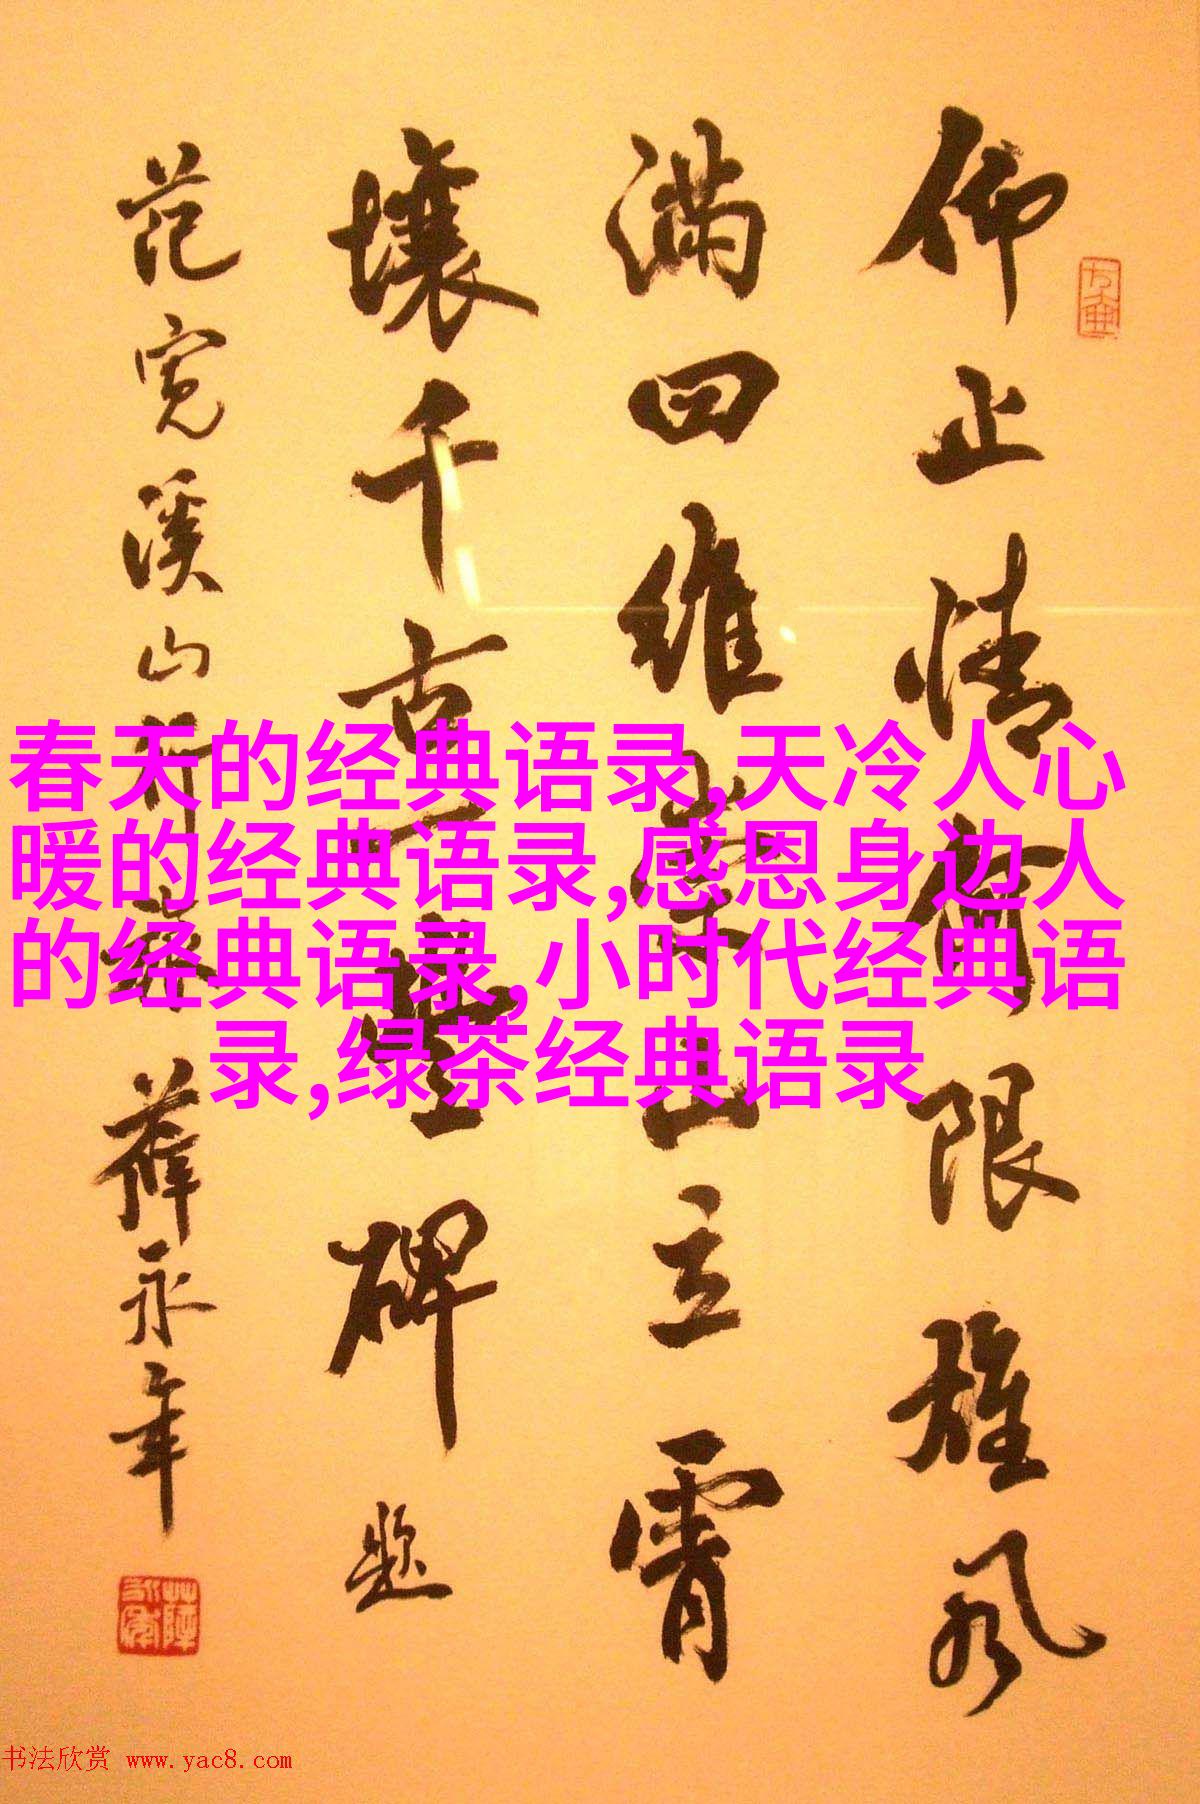 仰止情無限雄风
满四维崇山立霄
壤千古一豐碑 题
范宽溪山行旅 薛永年
春天的经典语录,天冷人心
暖的经典语录,感恩身边人
的经典语录,小时代经典语
录,绿茶经典语录
书法欣赏 www.yac8.com